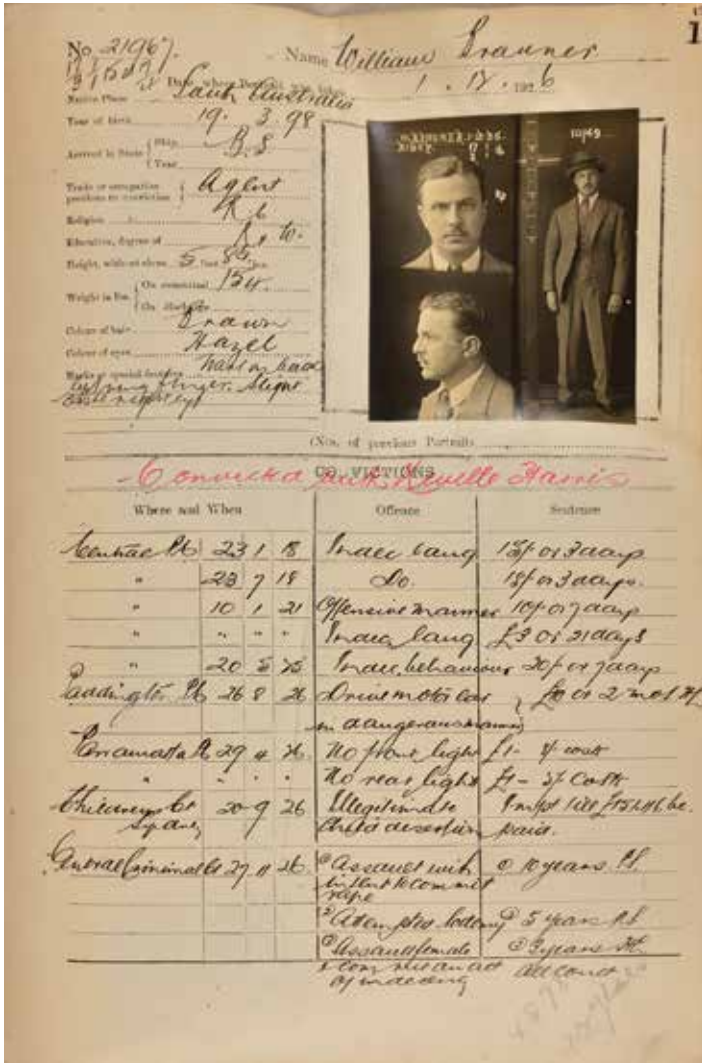 No. 21967. Name William
Date when Portrait was taken 1. 12. 1926
Native Place South Australia
Year of birth 19. 3. 98
Arrived in State { Ship B.S
{ Year
Trade or occupation previous to conviction } Agent
Religion R C
Education, degree of R & W.
Height, without shoes 5 feet
Weight in lbs. { On committal 154
{ On discharge
Colour of hair Brown
Colour of eyes Hazel
Marks or special features Wart on back
finger. Slight
right eye
(Nos. of previous Portraits
CONVICTIONS
Convicted with Neville Harris
Where and When Offence Sentence
Central Ct 23 1 18 Indec lang or 3 days
" 23 7 18 Do. or 3 days.
" 10 1 21 Offensive manner 10/- or 7 days
" " " " Indec. lang £3 or 21 days
" 20 5 25 Indec. behaviour 20/- or 7 days
Paddington Ct 26 8 26 Drive motor car or 2 mos HL
in dangerous manner
Parramatta Ct 29 4 26 No front light £1- cost
" " " " No rear light £1- costs
Childrens Ct 20 9 26 Illegitimate till be
Sydney child desertion paid.
Central Criminal Ct 29 11 26 (1) Assault with (1) 10 years P.S.
intent to commit
rape
(2) Attempted sodomy (2) 5 years P.S
(3) Assault female (3) 3 years HL
& commit an act all conct
of indecency